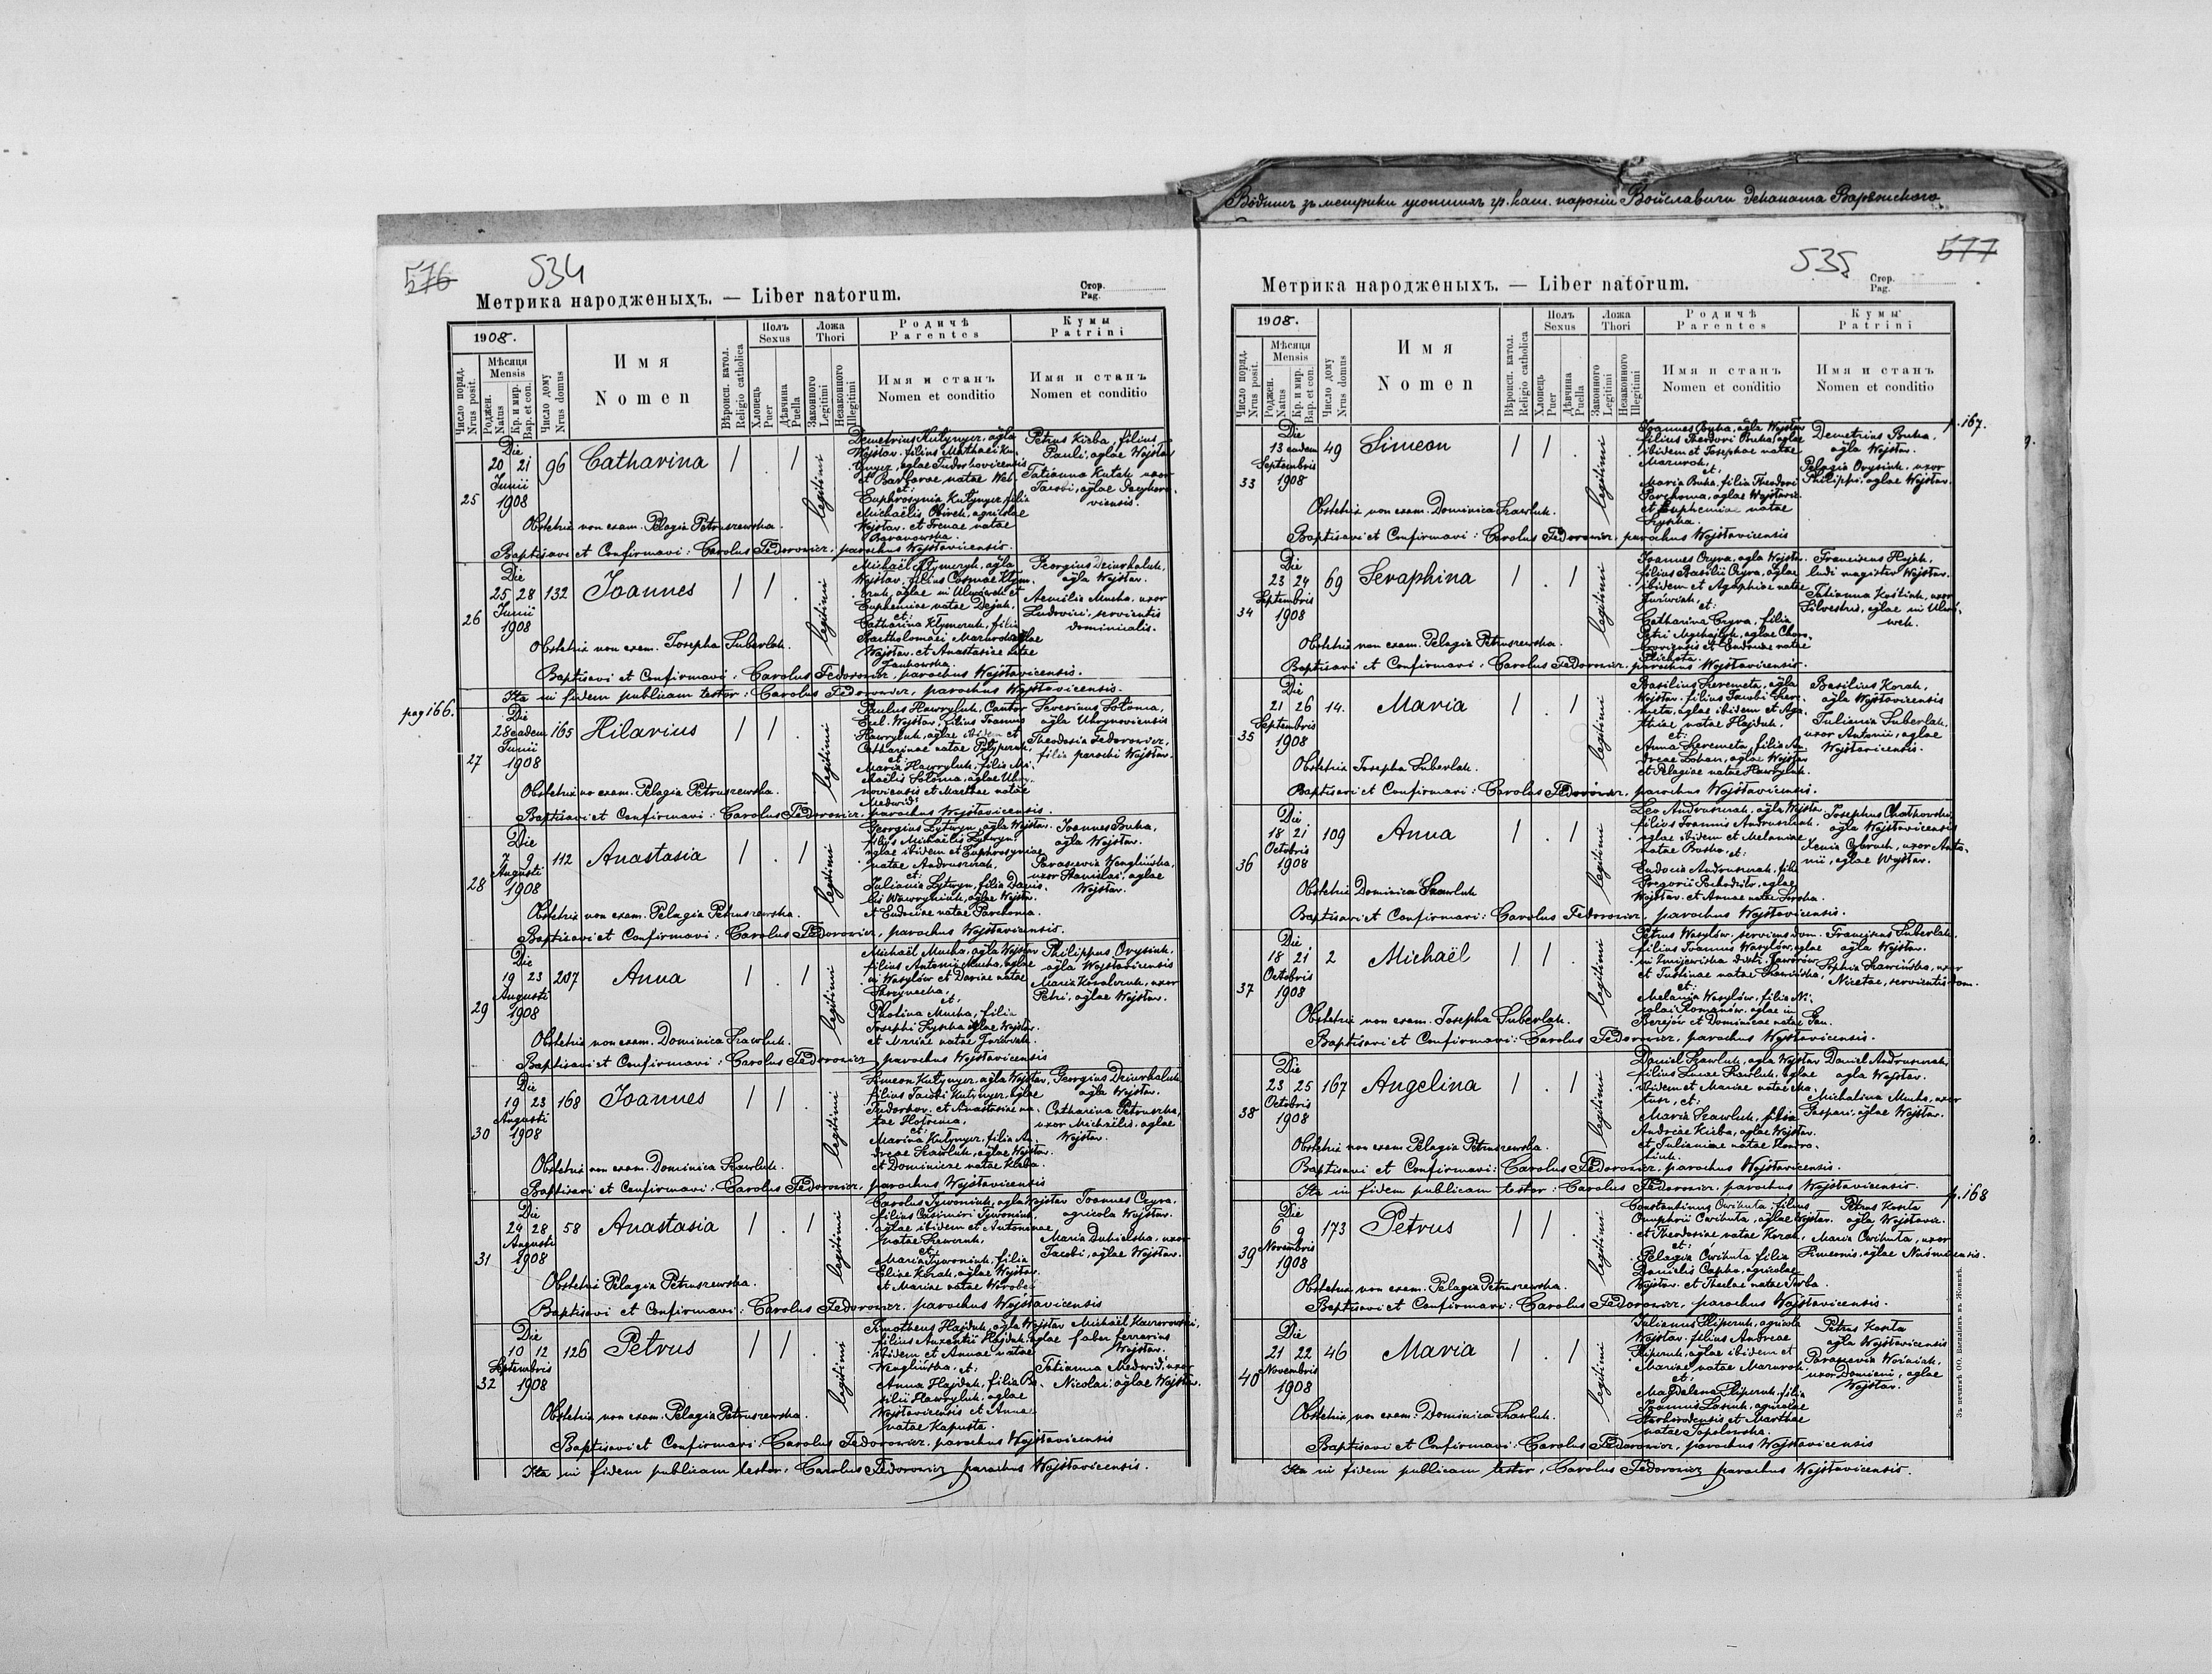 Вôдпись зъ метрики усопшихъ гр. кат. парохіи Войславичи деканата Варяжского
576
534
Метрика народженыхъ. — Liber natorum.
Стор.
Pag.
1908.
Число поряд.
Nrus posit.
Мѣсяця
Mensis
Роджен.
Natus
Кр. и мир.
Bap. et con.
Число дому
Nrus domus
Имя
Nomen
Вѣроисп. катол.
Religio catholica
Полъ
Sexus
Хлопець
Puer
Дѣвчина
Puella
Ложа
Thori
Законного
Legitimi
Незаконного
Illegitimi
Родичѣ
Parentes
Имя и станъ
Nomen et conditio
Кумы
Patrini
Имя и станъ
Nomen et conditio
25
Die
20 21
Junii
1908
96
Catharina
1 . 1
legitimi
Demetrius Kutynycz, agla
Wojsław. filius Mathaei Ku-
tynycz, aglae Tudorkovicensis
et Barbarae natae Web.
et:
Euphrosynia Kutynycz filia
Michaëlis, agricolae
Wojsław. et Irenae natae
Baranowska.
Petrus Kicba, filius
Pauli, aglae Wojsław
Tatianna Kutah, uxor
Jacobi, aglae
viensis.
Obstetrix non exam. Pelagia Petruszewska.
Baptisavi et Confirmavi: Carolus Fedorowicz, parochus Wojsłavicensis.
26
Die
25 28
Junii
1908
132
Joannes
1 1 .
legitimi
Michaël Kłymczuk, agla
Wojsław. filius Cosmae Kłym-
czuk, aglae in Ulwówek et
Euphemiae natae Dejak,
et:
Catharina Kłymczuk, filia
Bartholomaei Mazurok aglae
Wojsław. et Anastasiae natae
Jankowska.
Georgius Dziurkaluk,
agla Wojsław.
Aemilia Mucha, uxor
Ludovici, servientis
dominicalis.
Obstetrix non exam. Josepha Suberlak.
Baptisavi et Confirmavi: Carolus Fedorowicz, parochus Wojsłavicensis.
Ita in fidem publicam testor: Carolus Fedorowicz, parochus Wojsłavicensis.
pag 166.
27
Die
28 eadem
Junii
1908
165
Hilarius
1 1 .
legitimi
Paulus Hawryluk, Cantor
Eccl. Wojsław, filius Joannis
Hawryluk, aglae ibidem et
Catharinae natae Pyłypczuk,
et:
Maria Hawryluk, filia Mi-
chaëlis Sołoma, aglae Uhry-
noviensis et Marthae natae
Medwid.
Severinus Sołoma,
agla Uhrynoviensis
Theodosia Fedorowicz,
filia parochi Wojsław.
Obstetrix no exam. Pelagia Petruszewska.
Baptisavi et Confirmavi: Carolus Fedorowicz, parochus Wojsłavicensis.
28
Die
7 9
Augusti
1908
112
Anastasia
1 . 1
legitimi
Georgius Łytwyn, agla Wojsław.
filius Michaëlis Łytwyn,
aglae ibidem et Euphrosyniae
natae Andruszczak,
et:
Juliania Łytwyn, filia Danie-
lis Wawryniuk, aglae Wojsław.
et Eudociae natae Parchoma.
Joannes Buha,
agla Wojsław.
Parascevia Wenglińska,
uxor Stanislai, aglae
Wojsław.
Obstetrix non exam. Pelagia Petruszewska.
Baptisavi et Confirmavi: Carolus Fedorowicz, parochus Wojsłavicensis.
29
Die
19 23
Augusti
1908
207
Anna
1 . 1
legitimi
Michaël Mucha, agla Wojsław
filius Antonii Mucha, aglae
in Wasylów et Dariae natae
et:
Photina Mucha, filia
Josephi Szyszka aglae Wojsław.
et Mariae natae Jurkiwiak.
Philippus Owysiuk,
agla Wojsłavicensis
Maria Kowalczuk, uxor
Petri, aglae Wojsław.
Obstetrix non exam. Dominica Szawluk.
Baptisavi et Confirmavi: Carolus Fedorowicz, parochus Wojsłavicensis
30
Die
19 23
Augusti
1908
168
Joannes
1 1 .
legitimi
Simeon Kutynycz, agla Wojsław,
filius Jacobi Kutynycz, aglae
Tudorkov. et Anastasiae na-
tae Hofrema,
et:
Marina Kutynycz, filia An-
dreae Szawluk, aglae Wojsław.
et Dominicae natae Kicba.
Georgius Dziurkaluk
agla Wojsław.
Catharina Petruszka,
uxor Michaëlis, aglae
Wojsław.
Obstetrix non exam. Dominica Szawluk.
Baptisavi et Confirmavi: Carolus Fedorowicz, parochus Wojsłavicensis
31
Die
24 28
Augusti
1908
58
Anastasia
1 . 1
legitimi
Carolus Tywoniuk, agla Wojsław
filius Casimiri Tywoniuk,
aglae ibidem et Antoninae,
natae Szewczuk,
et:
Maria Tywoniuk, filia
Eliae Korak, aglae Wojsław.
et Mariae natae Worobec
Joannes Czyra,
agricola Wojsław.
Maria Dubielska, uxor
Jacobi, aglae Wojsław.
Obstetrix Pelagia Petruszewska.
Baptisavi et Confirmavi: Carolus Fedorowicz, parochus Wojsłavicensis
32
Die
10 12
Septembris
1908
126
Petrus
1 1 .
legitimi
Timotheus Hajduk, agla Wojsław
filius Auxentii Hajduk, aglae
ibidem et Annae natae
Wenglińska, et:
Anna Hajduk, filia Ba-
silii Hawryluk, aglae
Wojsłavicensis et Annae
natae Kapusta.
Michaël Kaczorowski,
faber ferrarius
Wojsław.
Tatianna Medwid, uxor
Nicolai, aglae Wojsław.
Obstetrix non exam. Pelagia Petruszewska.
Baptisavi et Confirmavi: Carolus Fedorowicz, parochus Wojsłavicensis
Ita in fidem publicam testor: Carolus Fedorowicz parochus Wojsłavicensis.
577
535
Метрика народженыхъ. — Liber natorum.
Стор.
Pag.
1908.
Число поряд.
Nrus posit.
Мѣсяця
Mensis
Роджен.
Natus
Кр. и мир.
Bap. et con.
Число дому
Nrus domus
Имя
Nomen
Вѣроисп. катол.
Religio catholica
Полъ
Sexus
Хлопець
Puer
Дѣвчина
Puella
Ложа
Thori
Законного
Legitimi
Незаконного
Illegitimi
Родичѣ
Parentes
Имя и станъ
Nomen et conditio
Кумы
Patrini
Имя и станъ
Nomen et conditio
p. 167.
33
Die
13 eadem
Septembris
1908
49
Simeon
1 1 .
legitimi
Joannes Buha, agla Wojsław
filius Theodori Buha, aglae
ibidem et Josephae natae
Mazurok,
et:
Maria Buha, filia Theodori
Parchoma, aglae Wojsłavic.
et Euphemiae natae
Szyszka.
Demetrius Buha,
agla Wojsław.
Pelagia Owysiuk, uxor
Philippi, aglae Wojsław.
Obstetrix non exam. Dominica Szawluk.
Baptisavi et Confirmavi: Carolus Fedorowicz, parochus Wojsłavicensis
34
Die
23 24
Septembris
1908
69
Seraphina
1 . 1
legitimi
Joannes Czyra, agla Wojsław.
filius Basilii Czyra, aglae
ibidem et Agaphiae natae
Jurkiwiak, et:
Catharina Czyra, filia
Petri Mychajluk, aglae Choro-
broviensis et Eudociae natae
Plichota.
Franciscus Hajak,
ludi magister Wojsław.
Tatianna Kostiuk, uxor
Silvestri, aglae in Ulwó-
wek.
Obstetrix non exam. Pelagia Petruszewska.
Baptisavi et Confirmavi: Carolus Fedorowicz, parochus Wojsłavicensis.
35
Die
21 26
Septembris
1908
14.
Maria
1 . 1
legitimi
Basilius Szeremeta, agla
Wojsław. filius Jacobi Szere-
meta, aglae ibidem et Aga-
phiae natae Hajduk,
et:
Anna Szeremeta, filia An-
dreae Łoban, aglae Wojsław
et Pelagiae natae Hawryluk.
Basilius Korak,
agla Wojsłavicensis
Juliania Suberlak,
uxor Antonii, aglae
Wojsłavicensis.
Obstetrix Josepha Suberlak.
Baptisavi et Confirmavi: Carolus Fedorowicz, parochus Wojsłavicensis.
36
Die
18 21
Octobris
1908
109
Anna
1 . 1
legitimi
Leo Andruszczak, agla Wojsław.
filius Joannis Andruszczak,
aglae ibidem et Melaniae
natae Buska, et:
Eudocia Andruszczak, filia
Gregorii Pochodziło, aglae
Wojsław. et Annae natae Soroka.
Josephus Chatkowski
agla Wojsłavicensis
Xenia Cybruch, uxor Anto-
nii, aglae Wojsław.
Obstetrix Dominica Szawluk
Baptisavi et Confirmavi: Carolus Fedorowicz, parochus Wojsłavicensis.
37
Die
18 21
Octobris
1908
2
Michaël
1 1 .
legitimi
Petrus Wasylów, serviens dom.
filius Joannis Wasylów, aglae
in Zmijewiska distr. Jaworów
et Justinae natae Szawińska,
et:
Melania Wasylów, filia Ni-
colai Romanów, aglae in
Berejów et Dominicae natae Gau.
Franciscus Suberlak,
agla Wojsław.
Sophia Szawińska, uxor
Nicetae, servientis dom.
Obstetrix non exam. Josepha Suberlak.
Baptisavi et Confirmavi: Carolus Fedorowicz, parochus Wojsłavicensis.
38
Die
23 25
Octobris
1908
167
Angelina
1 . 1
legitimi
Daniel Szawluk, agla Wojsław
filius Lucae Szawluk, aglae
ibidem et Mariae natae Ma-
tusz, et:
Maria Szawluk, filia
Andreae Kicba, aglae Wojsław.
et Julianiae natae Hondra-
tiuk.
Daniel Andruszczak,
agla Wojsław.
Michalina Mucha, uxor
Gaspari, aglae Wojsław.
Obstetrix non exam Pelagia Petruszewska.
Baptisavi et Confirmavi: Carolus Fedorowicz, parochus Wojsłavicensis.
Ita in fidem publicam testor: Carolus Fedorowicz, parochus Wojsłavicensis.
p. 168
39
Die
6 9
Novembris
1908
173
Petrus
1 1 .
legitimi
Constantinus Cwikuta, filius
Onuphrii Cwikuta, aglae Wojsław.
et Theodosiae natae Korak,
et:
Pelagia Cwikuta filia
Danielis Capko, agricolae
Wojsław. et Theclae natae Torba.
Petrus Kosta
agla Wojsłavic.
Maria Cwikuta, uxor
Simeonis, aglae Nusmicensis.
Obstetrix non exam. Pelagia Petruszewska.
Baptisavi et Confirmavi: Carolus Fedorowicz, parochus Wojsłavicensis.
40
Die
21 22
Novembris
1908
46
Maria
1 . 1
legitimi
Julianus Pliperuk, agricola
Wojsław. filius Andreae
Pliperuk, aglae ibidem et
Mariae natae Mazurok,
et:
Magdalena Pliperuk, filia
Joannis Łasiuk, agricolae
Starhorodensis et Marthae
natae Topolowska.
Petrus Kosta
agla Wojsłavicensis
Parascevia Woźniak,
uxor Damiani, aglae
Wojsław.
Obstetrix non exam. Dominica Szawluk.
Baptisavi et Confirmavi: Carolus Fedorowicz, parochus Wojsłavicensis
Ita in fidem publicam testor: Carolus Fedorowicz parochus Wojsłavicensis.
Зъ печатнѣ ОО. Василіянъ въ Жовквѣ.